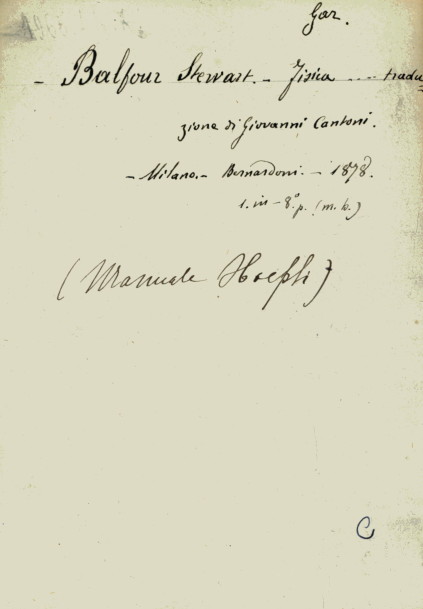 Gar.
- Balfour Stewart. - Fisica .... tradu=
zione di Giovanni Cantoni.
- Milano. - Bernardoni. - 1878.
1. in - 8.° p. (m. b.)
(Manuale Hoepli)
C